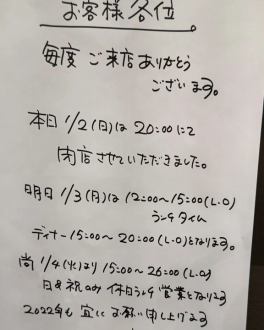 お客様各位
毎度 ご来店ありがとう
ございます。
本日 1/2(日)は 20:00にて
閉店させていただきました。
明日 1/3(月)は 12:00〜15:00(L.O)
ランチタイム
ディナー15:00〜20:00(L.O)となります。
尚 1/4(火)より 15:00〜26:00(L.O)
日&祝のみ 休日ランチ営業となります
2022年も 宜しくお願い申し上げます